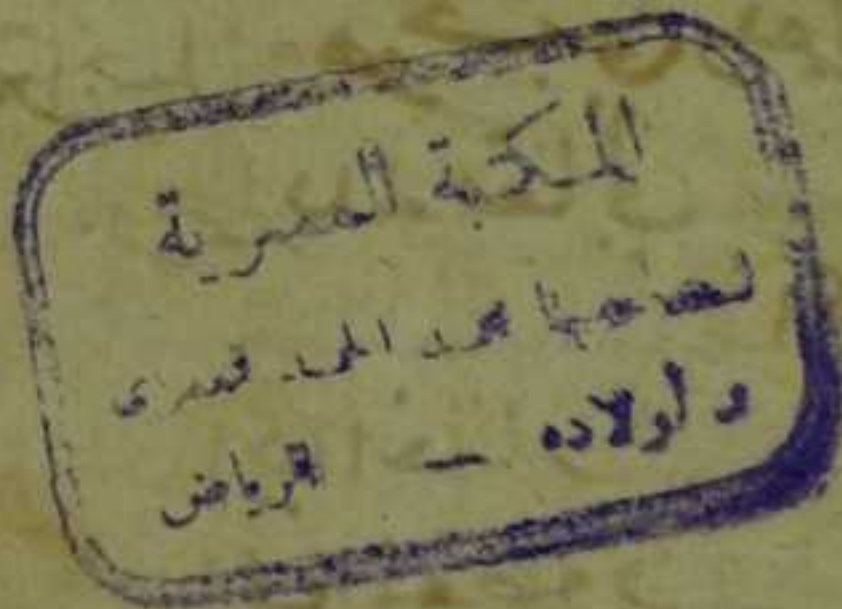 المكتبة المصرية
لصاحبها محمد الحمد
وأولاده — الرياض